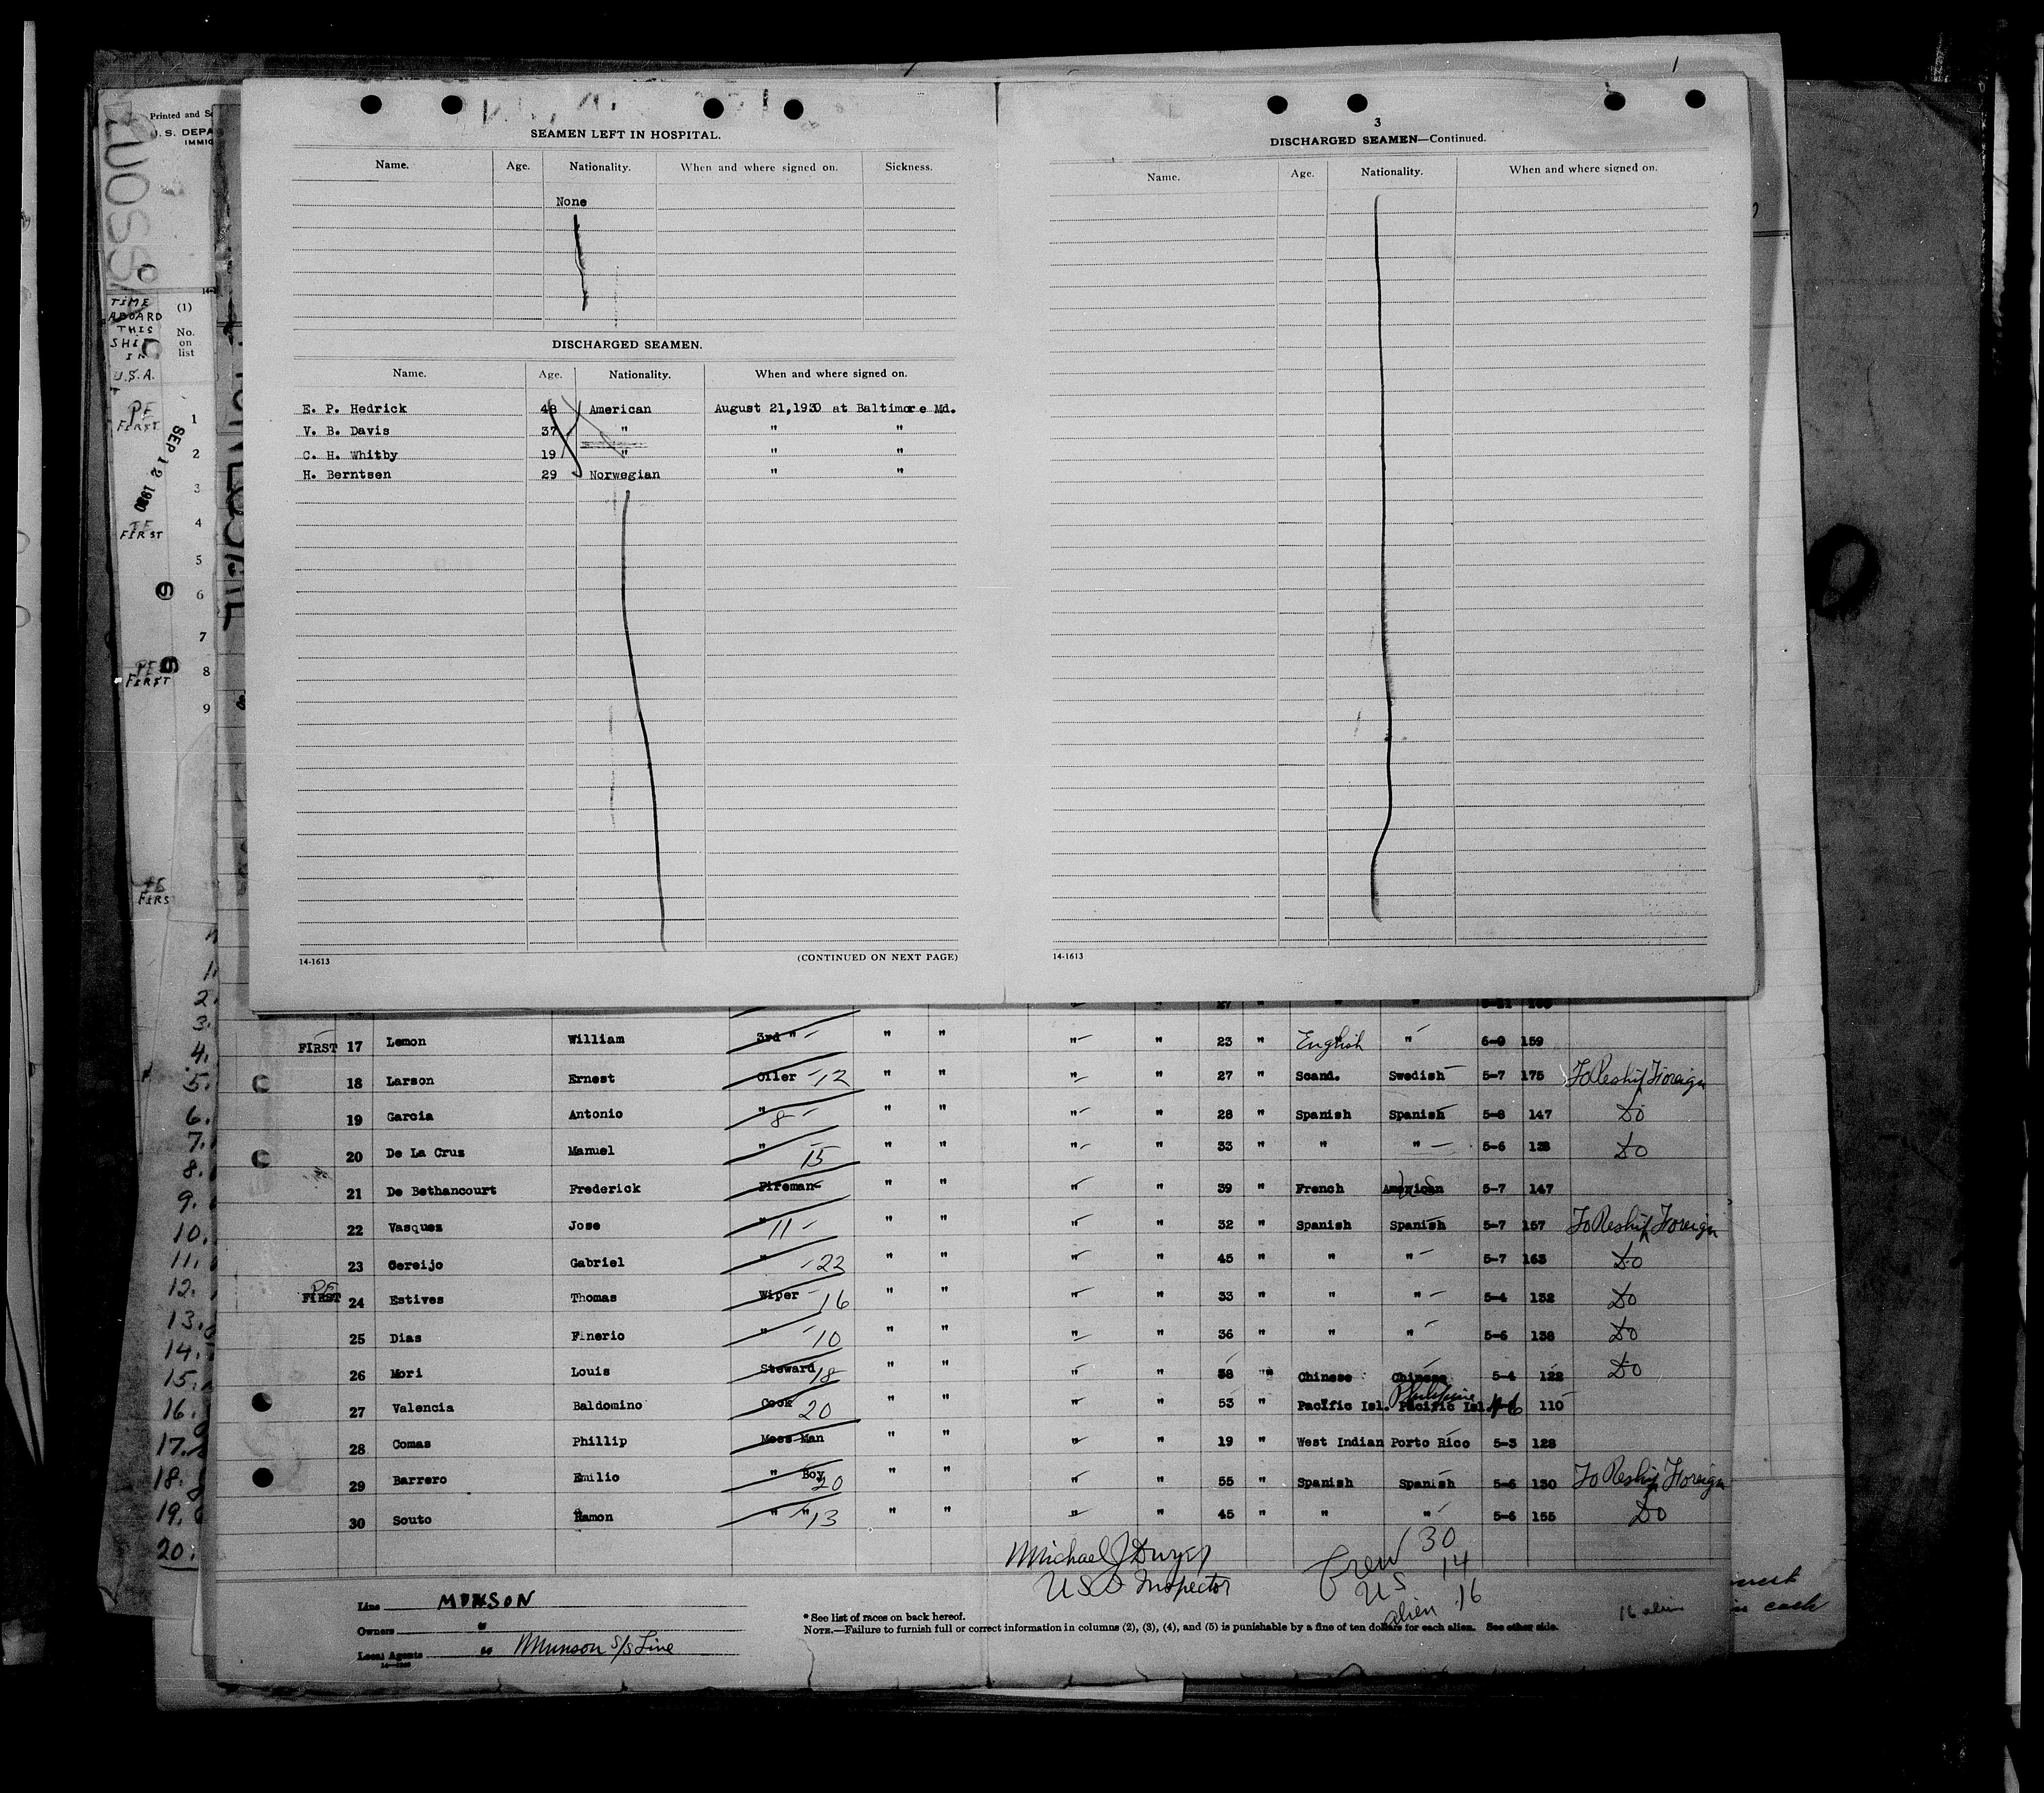 SEAMEN LEFT IN HOSPITAL.
Name. Age. Nationality. When and where signed on. Sickness.
None
DISCHARGED SEAMEN.
Name. Age. Nationality. When and where signed on.
E. P. Hedrick 48 American August 21,1930 at Baltimore Md.
V. B. Davis 37 " " "
C. H. Whitby 19 " " "
H. Berntsen 29 Norwegian " "
14-1613 (CONTINUED ON NEXT PAGE)
3
DISCHARGED SEAMEN—Continued.
Name. Age. Nationality. When and where signed on.
14-1613
Printed and
U. S. DEPA
IMMIG
TIME
ABOARD
THIS
SHIP
IN
U.S.A.
(1)
No.
on
list
PF
FIRST 1
SEP 12 1930
2
3
4
FIRST
5
6
7
PF 8
FIRST
9
FIRS
1.
2.
3.
4.
5.
6.
7.
8.
9.
10.
11.
12.
13.
14.
15.
16.
17.
18.
19.
20.
FIRST 17 Lemon William 3rd " " " " " 23 " English " 6-0 159
18 Larson Ernest Oiler 12 " " " " 27 " Scand. Swedish 5-7 175 To Reship Foreign
19 Garcia Antonio " 8 " " " " 28 " Spanish Spanish 5-8 147 Do
20 De La Cruz Manuel " 15 " " " " 33 " " " 5-6 138 Do
21 De Bethancourt Frederick Fireman " " " " 39 " French American 5-7 147
22 Vasquez Jose " 11 " " " " 32 " Spanish Spanish 5-7 157 To Reship Foreign
23 Cereijo Gabriel " 22 " " " " 45 " " " 5-7 163 Do
PF FIRST 24 Estives Thomas Wiper 16 " " " " 33 " " " 5-4 132 Do
25 Dias Finerio " 10 " " " " 36 " " " 5-6 138 Do
26 Mori Louis Steward 18 " " " " 38 " Chinese Chinese 5-4 122 Do
27 Valencia Baldomino Cook 20 " " " " 53 " Pacific Isl. Philippine Pacific Isl. 110
28 Comas Phillip Mess Man " " " " 19 " West Indian Porto Rico 5-3 128
29 Barrero Emilio " Boy 20 " " " " 55 " Spanish Spanish 5-6 130 To Reship Foreign
30 Souto Ramon " " 13 " " " " 45 " " " 5-6 155 Do
Michael J Dwyer
U S Inspector
Crew 30
US 14
alien 16
Line MUNSON
Owners "
Local Agents " Munson S/S Line
* See list of races on back hereof.
NOTE.—Failure to furnish full or correct information in columns (2), (3), (4), and (5) is punishable by a fine of ten dollars for each alien. See other side.
16 alien
each